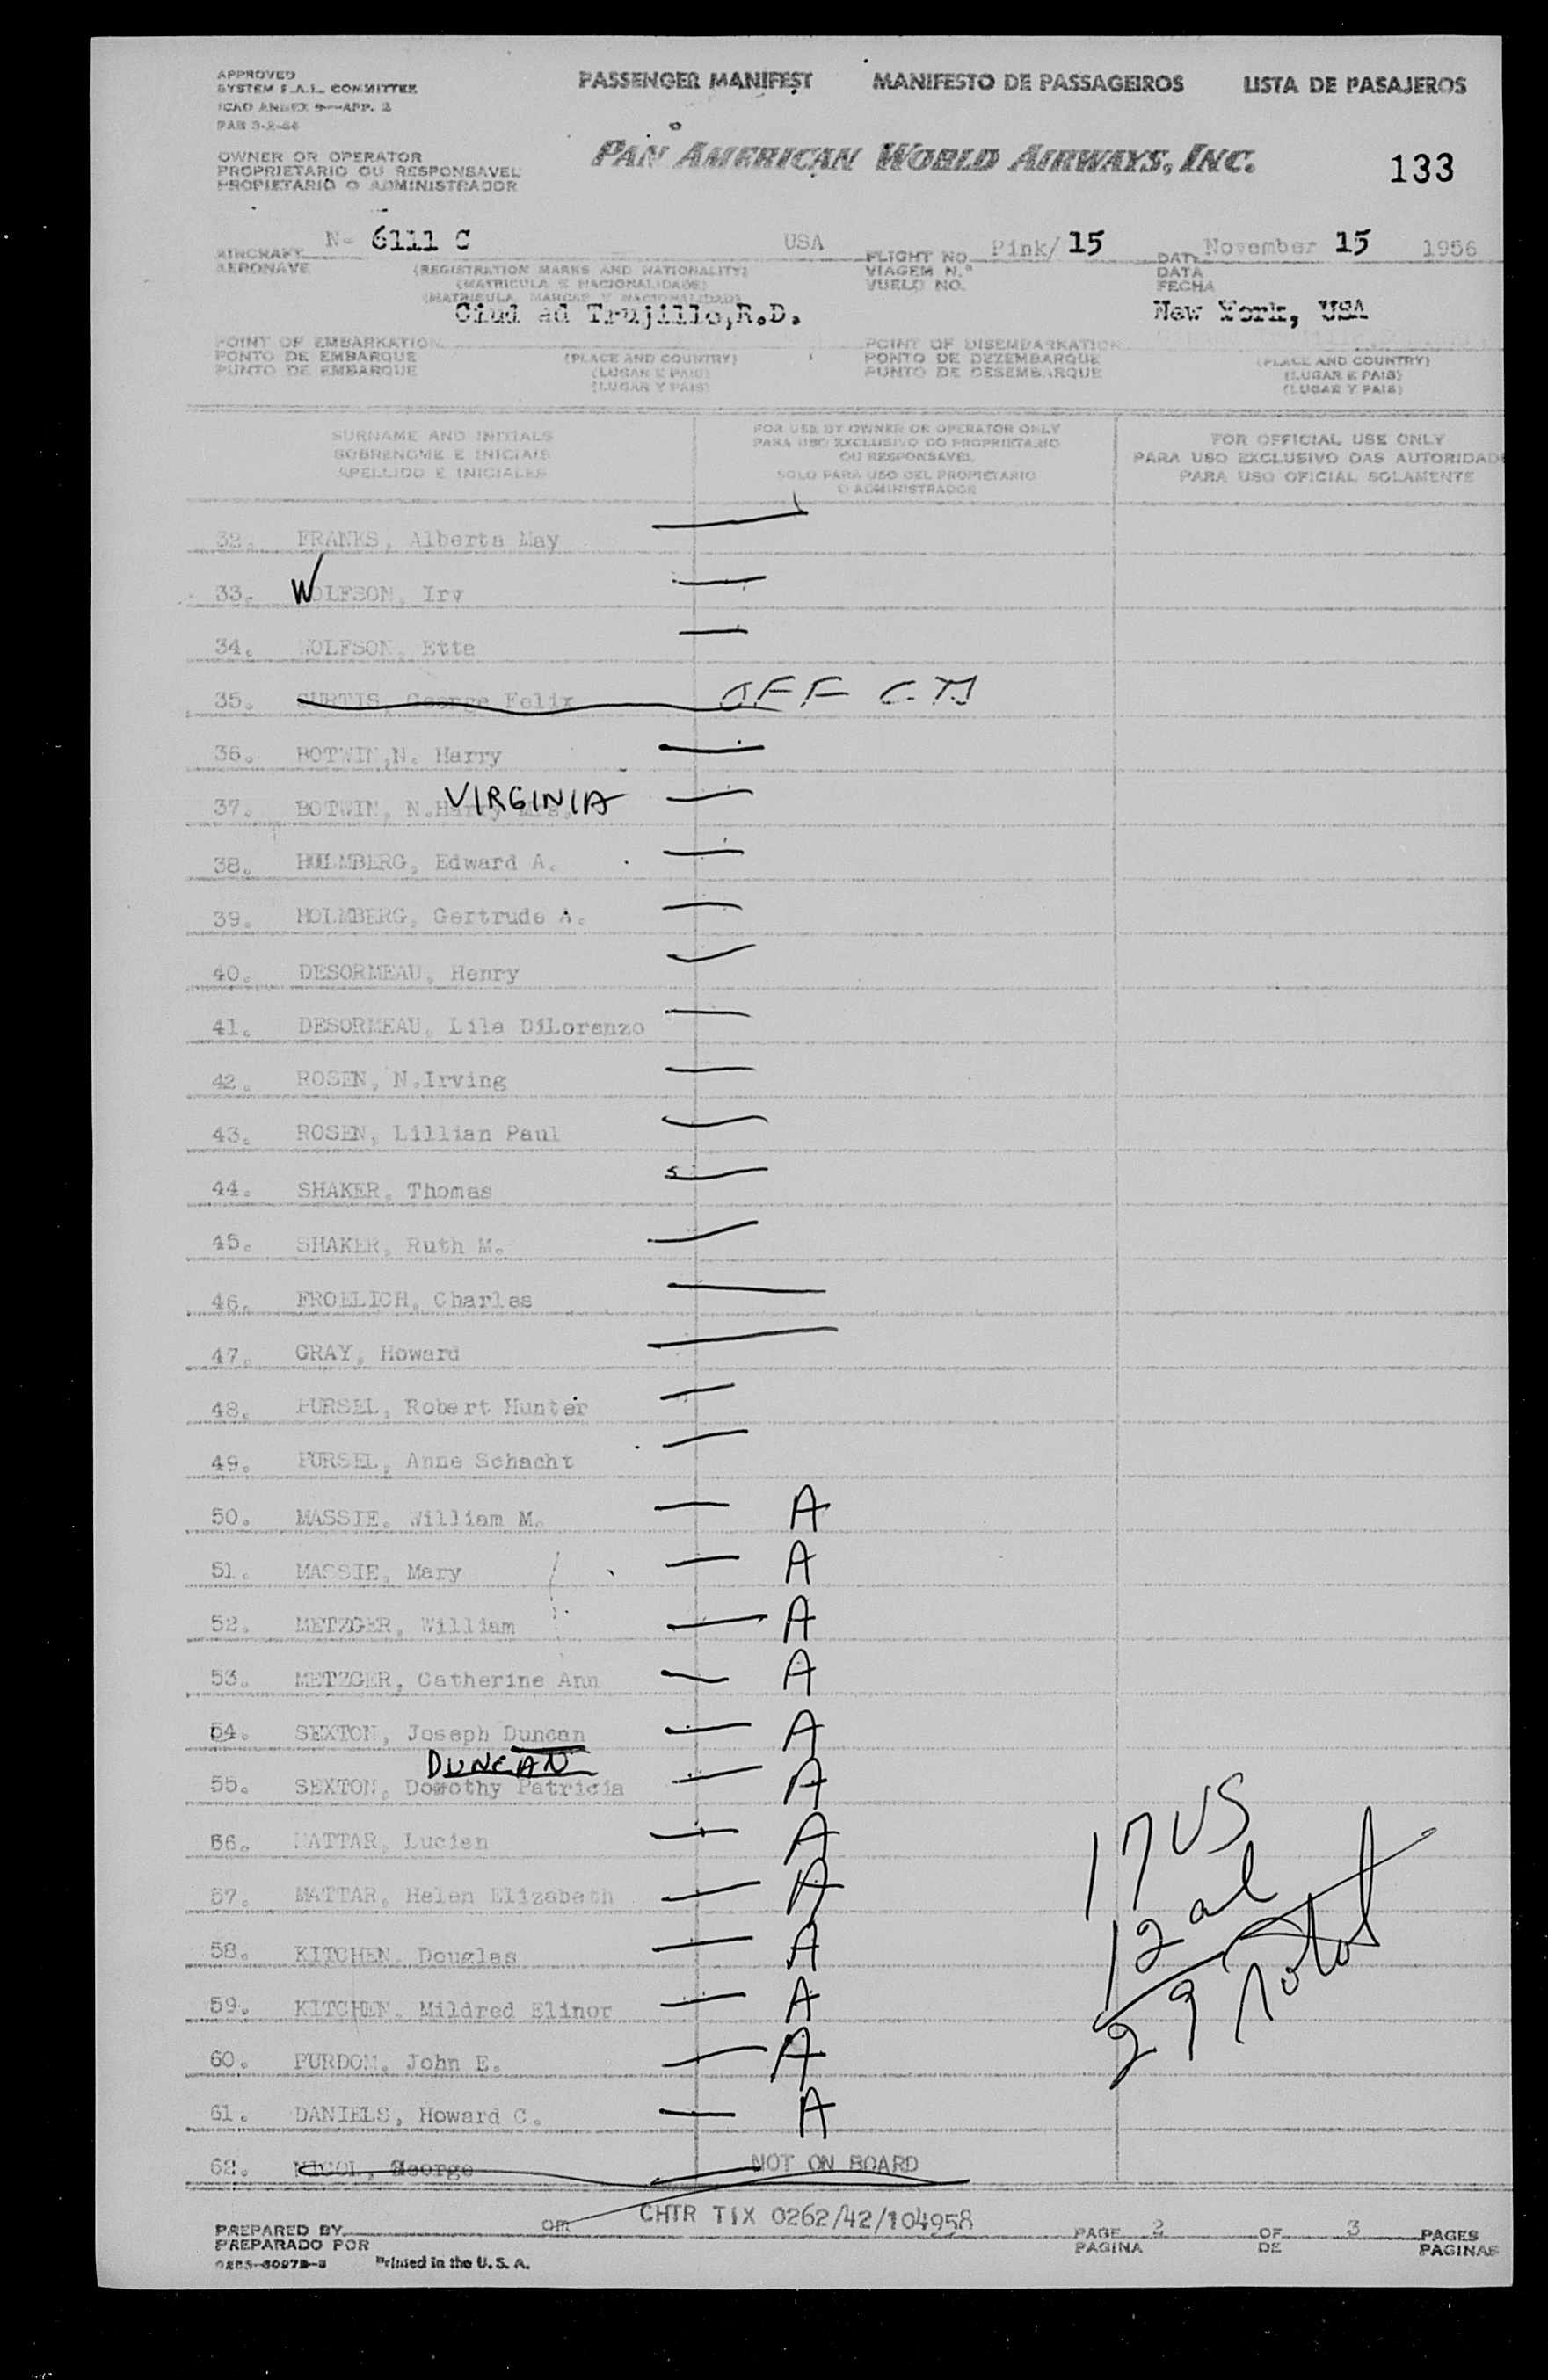 APPROVED
SYSTEM F.A.L. COMMITTEE
ICAO ANNEX 9—APP. 2
PASSENGER MANIFEST MANIFESTO DE PASSAGEIROS LISTA DE PASAJEROS
OWNER OR OPERATOR
PROPRIETARIO OU RESPONSAVEL
PROPIETARIO O ADMINISTRADOR
PAN AMERICAN WORLD AIRWAYS, INC.
133
AIRCRAFT N- 6111 C USA FLIGHT NO. Pink/ 15 DATE November 15 1956
AERONAVE (REGISTRATION MARKS AND NATIONALITY) VIAGEM N.º DATA
(MATRICULA E NACIONALIDADE) VUELO NO. FECHA
(MATRICULA, MARCAS Y NACIONALIDAD)
Ciud ad Trujillo,R.D. New York, USA
POINT OF EMBARKATION POINT OF DISEMBARKATION
PONTO DE EMBARQUE (PLACE AND COUNTRY) PONTO DE DEZEMBARQUE (PLACE AND COUNTRY)
PUNTO DE EMBARQUE (LUGAR E PAIS) PUNTO DE DESEMBARQUE (LUGAR E PAIS)
(LUGAR Y PAIS) (LUGAR Y PAIS)
SURNAME AND INITIALS
SOBRENOME E INICIAIS
APELLIDO E INICIALES
FOR USE BY OWNER OR OPERATOR ONLY
PARA USO EXCLUSIVO DO PROPRIETARIO
OU RESPONSAVEL
SOLO PARA USO DEL PROPIETARIO
O ADMINISTRADOR
FOR OFFICIAL USE ONLY
PARA USO EXCLUSIVO DAS AUTORIDAD
PARA USO OFICIAL SOLAMENTE
32. FRANKS, Alberta May
33. WOLFSON, Irv
34. WOLFSON, Etta
35. CURTIS, George Felix OFF
36. BOTWIN,N. Harry
VIRGINIA
37. BOTWIN, N.Harry Mrs.
38. HOLMBERG, Edward A.
39. HOLMBERG, Gertrude A.
40. DESORMEAU, Henry
41. DESORMEAU, Lila DiLorenzo
42. ROSEN, N.Irving
43. ROSEN, Lillian Paul
44. SHAKER, Thomas
45. SHAKER, Ruth M.
46. FROELICH, Charles
47. GRAY, Howard
48. PURSEL, Robert Hunter
49. PURSEL, Anne Schacht
50. MASSIE, William M. A
51. MASSIE, Mary A
52. METZGER, William A
53. METZGER, Catherine Ann A
54. SEXTON, Joseph Duncan A
DUNCAN
55. SEXTON, Dorothy Patricia A
56. MATTAR, Lucien A
57. MATTAR, Helen Elizabeth A
58. KITCHEN, Douglas A
59. KITCHEN, Mildred Elinor A
60. PURDOM, John E. A
61. DANIELS, Howard C. A
17 US
12 al
29 Total
62. NICOL, George NOT ON BOARD
om CHTR TIX 0262/42/104958
PREPARED BY PAGE 2 OF 3 PAGES
PREPARADO POR PAGINA DE PAGINAS
Printed in the U. S. A.